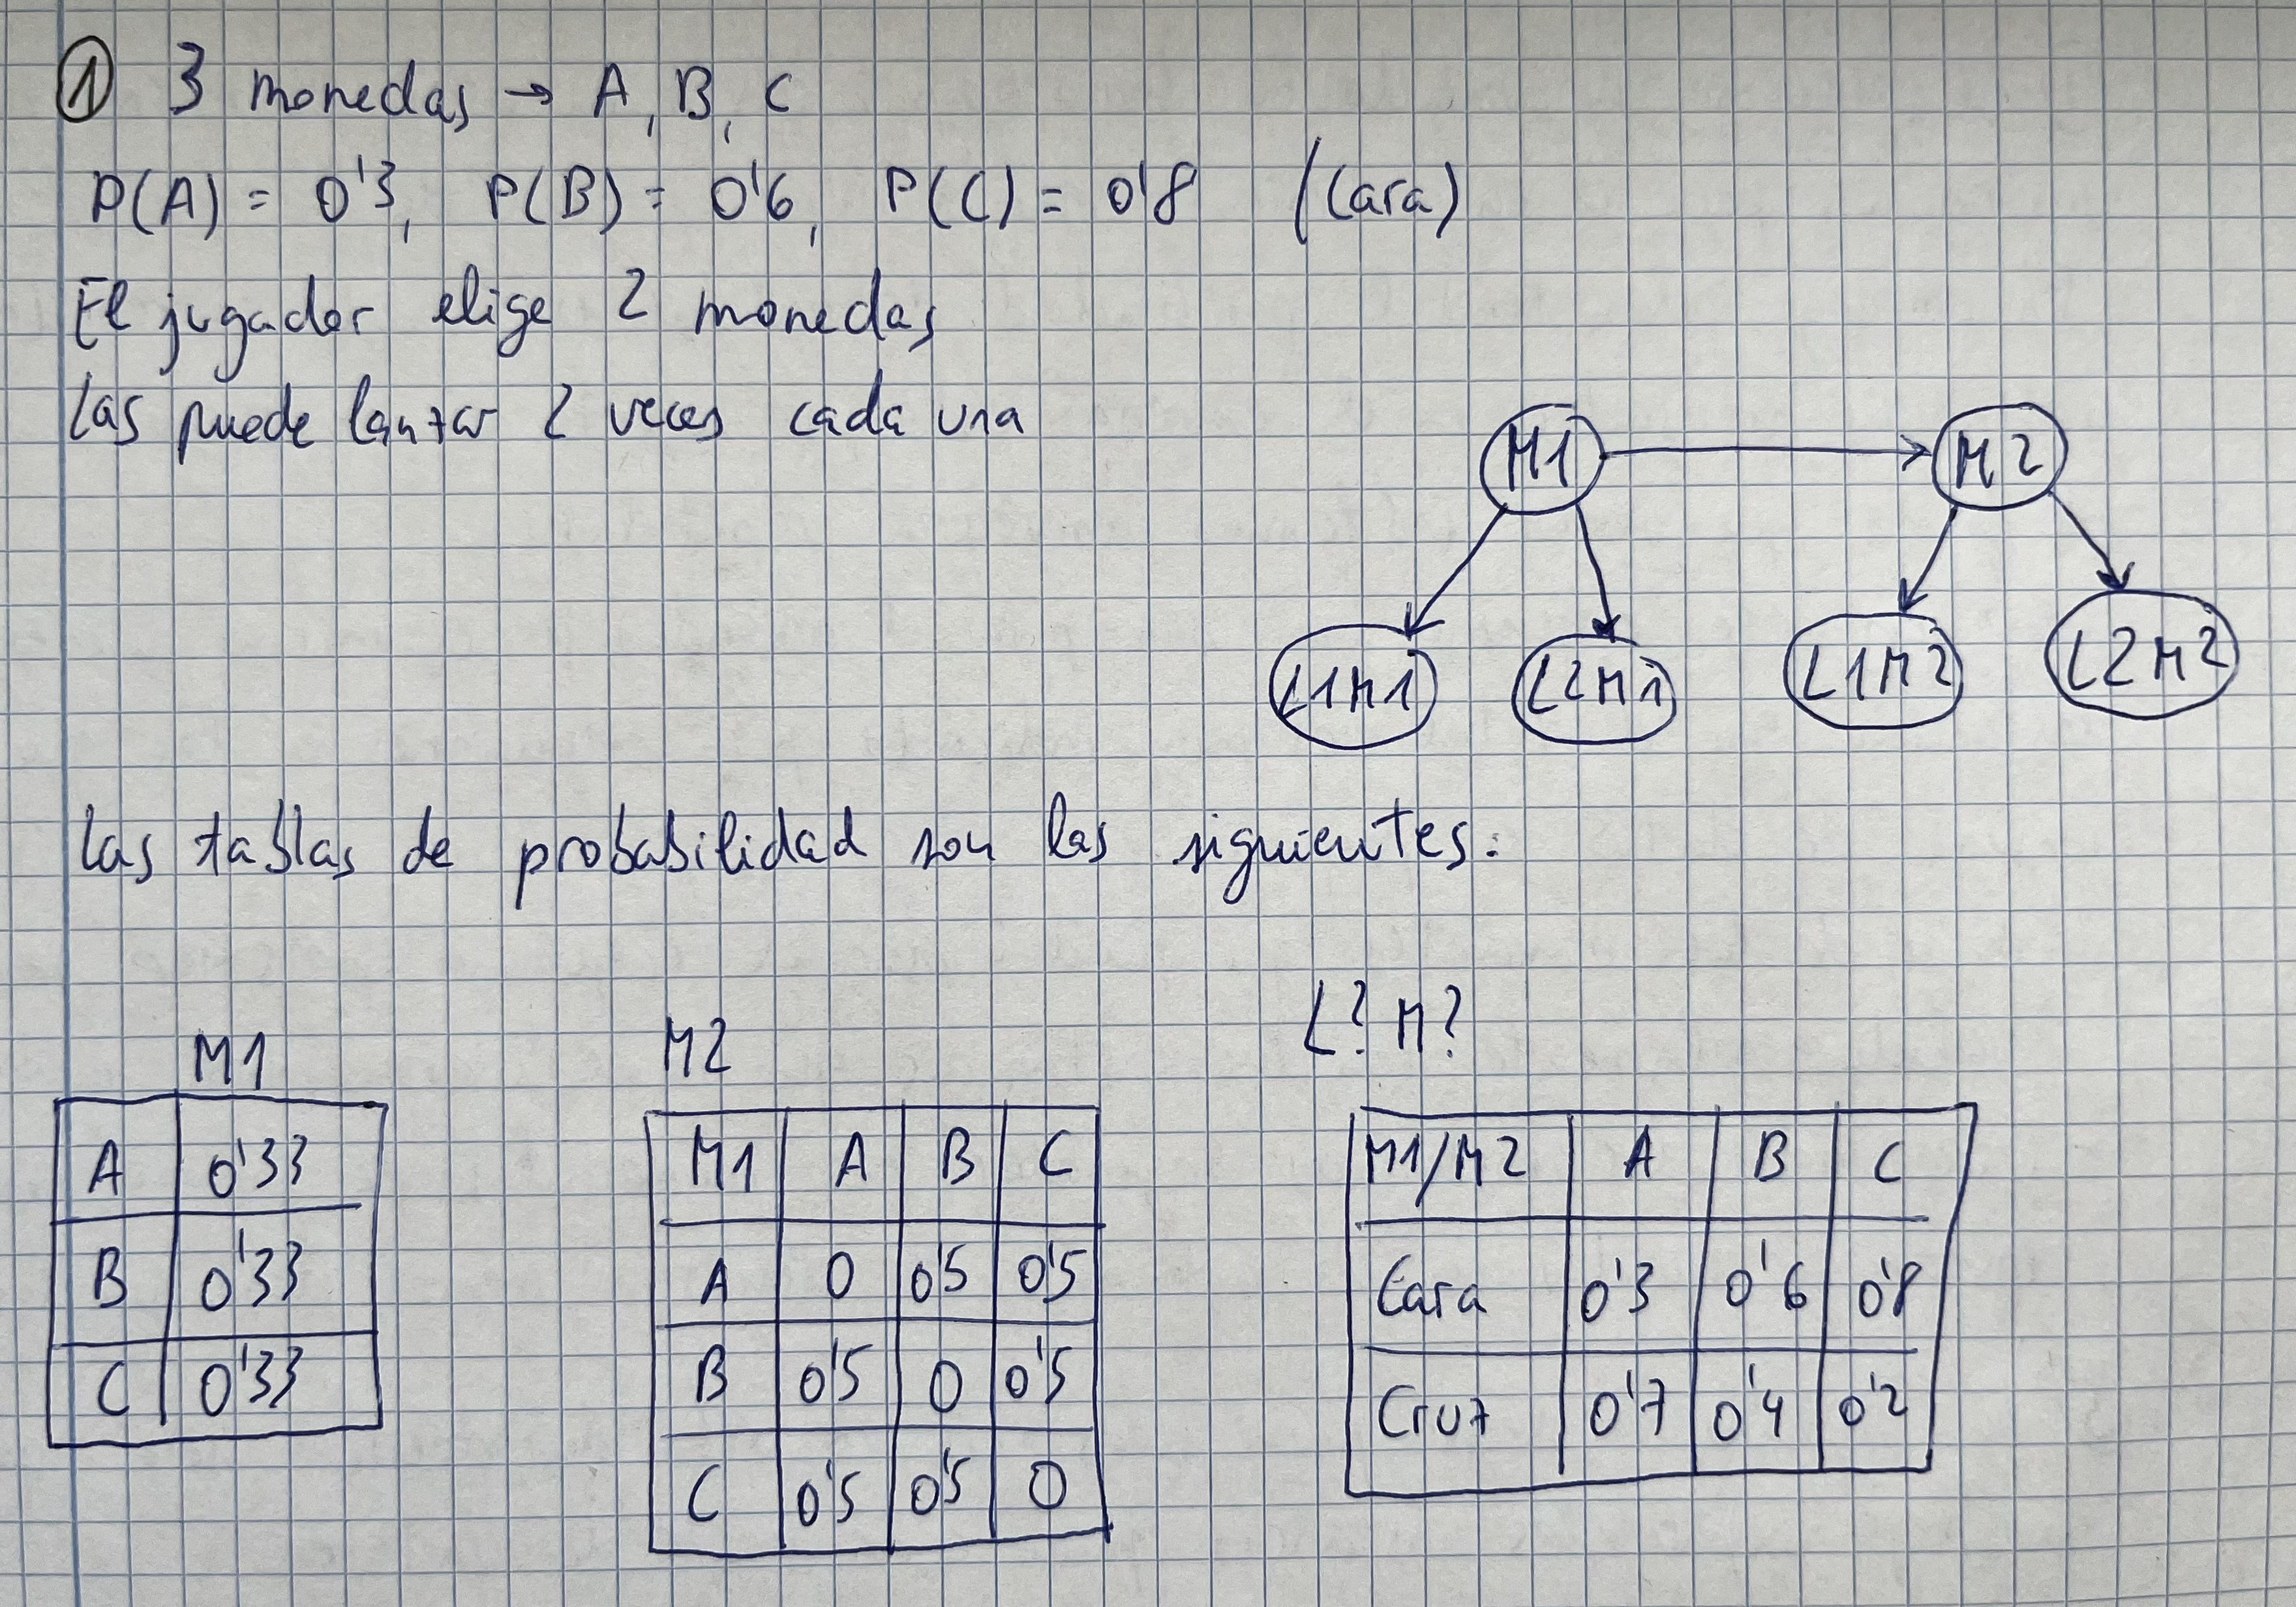 ① 3 monedas → A, B, C
P(A) = 0'3, P(B) = 0'6, P(C) = 0'8 (Cara)
El jugador elige 2 monedas
Las puede lanzar 2 veces cada una
M1 → M2
L1M1 L2M1 L1M2 L2M2
Las tablas de probabilidad son las siguientes:
M1
A 0'33
B 0'33
C 0'33
M2
M1 A B C
A 0 0'5 0'5
B 0'5 0 0'5
C 0'5 0'5 0
L? M?
M1/M2 A B C
Cara 0'3 0'6 0'8
Cruz 0'7 0'4 0'2